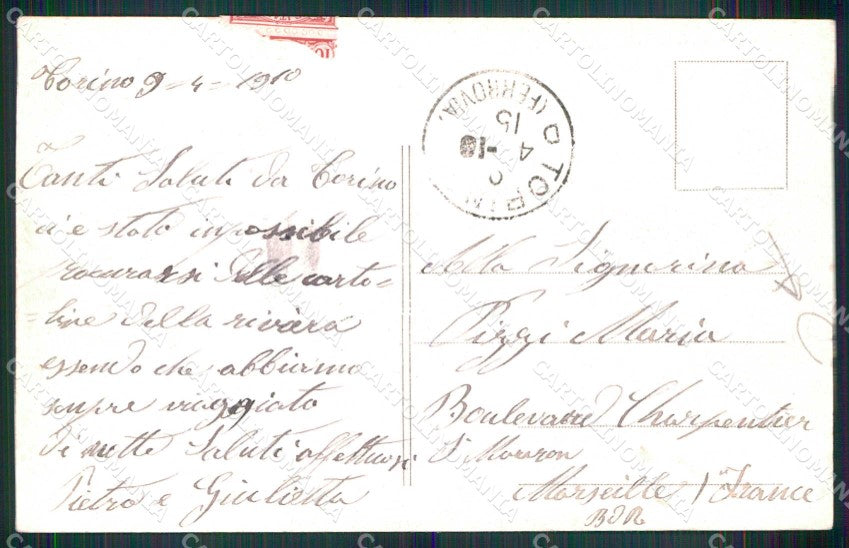 Torino 9-4-1910
Tanti Saluti da Torino
ci e stato impossibile
procurarsi delle carto=
=line della riviera
essendo che abbiamo
sempre viaggiato
di notte Saluti affettuosi
Pietro e Giulietta
TORINO
(FERROVIA)
15
4 -10
Alla Signorina
Pizzi Maria
Boulevard Charpentier
St
Marseille France
BdR
CARTOLINOMANIA